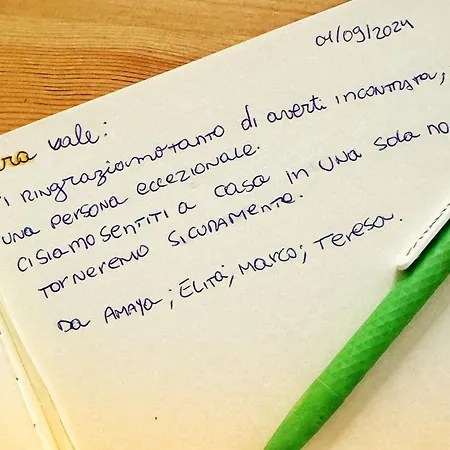 01/09/2024
ra vale:
i ringraziamo tanto di averti incontrata,
una persona eccezionale.
ci siamo sentiti a casa in una sola no
torneremo sicuramente.
Da Amaya; Elita; Marco; Teresa.